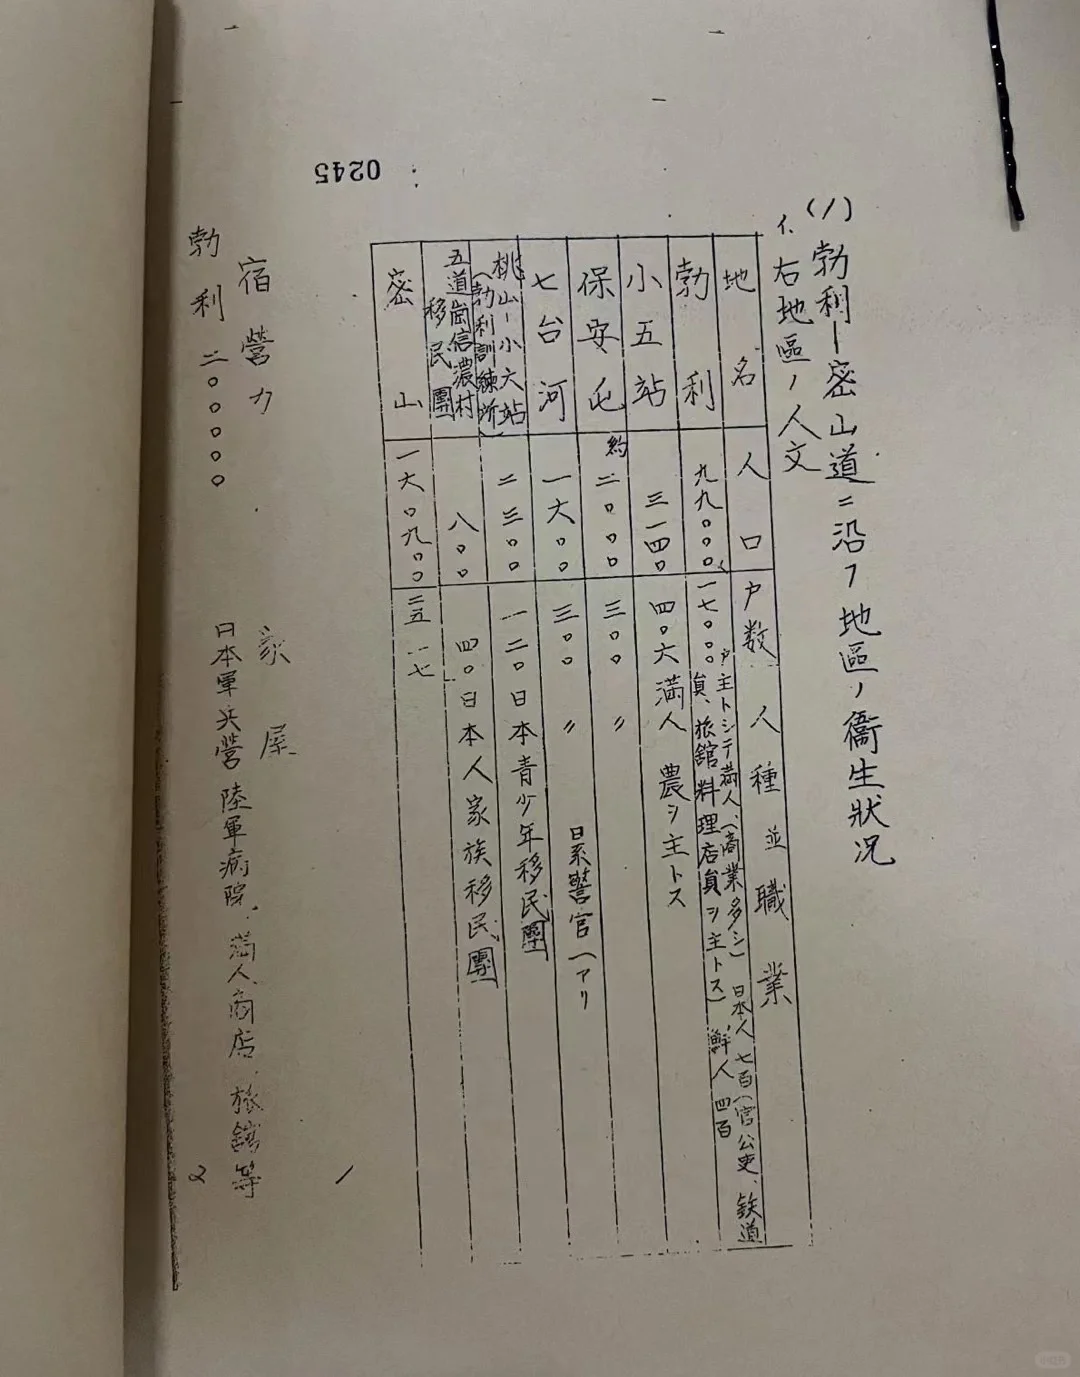 (1) 勃利―密山道ニ沿フ地區ノ衞生狀況
イ、右地區ノ人文
地名 人口 戸数 人種並職業
勃利 九九〇〇〇 一七〇〇〇戸 主トシテ満人(商業多シ) 日本人七百(官公吏、鉄道
員、旅舘料理店員ヲ主トス) 鮮人四百
小五站 三一四〇 四〇六 満人 農ヲ主トス
保安屯 約二〇〇〇 三〇〇 〃
七台河 一六〇〇 三〇〇 〃 日系警官一アリ
桃山―小六站
(勃利訓練所) 二三〇〇 一二〇 日本青少年移民團
五道崗信濃村
移民團 八〇〇 四〇 日本人家族移民團
密山 一六〇九〇〇 二五一七
宿營力 家屋
勃利 二〇〇〇〇 日本軍兵營 陸軍病院、満人商店、旅舘等
0245